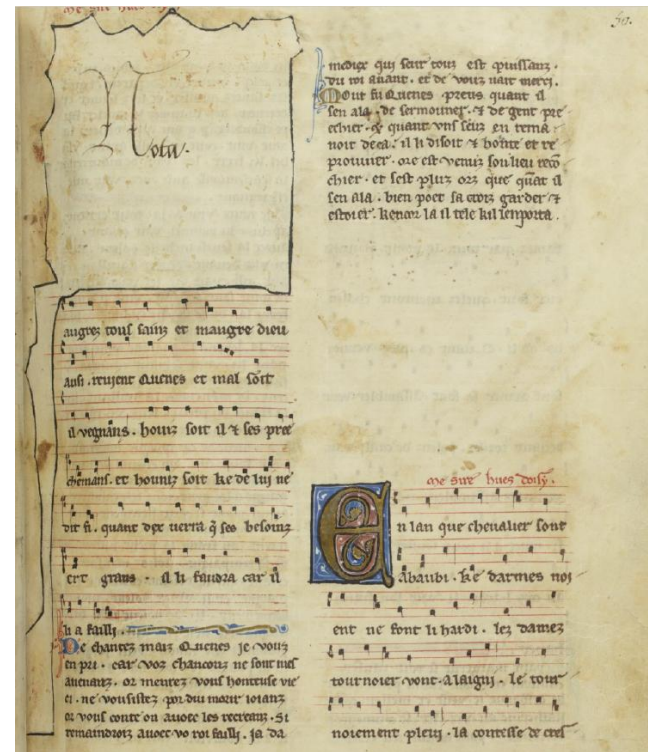 me sire hues
Nota.
augrez touſ ſainz et maugre dieu
auſi. reuient Quenes et mal ſoit
il vegnans. houniz ſoit il ⁊ ſes pree
chemans. et houniz ſoit ke de lui ne
dit fi. quant dex uerra q̃ ſes beſoinz
ert grans. il li faudra car il
li a failli.
De chantez maiz Quenes je vouz
en pri. car voz chanconz ne ſont mes
auenanz. or menrez vouz honteuſe vie
ci. ne vouſiſtez por diu morir ioianz
or vouz conte on auoec les recreanz. Si
remaindroiz auoec vo roi failli. ja da
50.
mediex qui ſeur touz eſt puiſſanz.
du roi auant. et de vouz nait merci.
Mout fu Quenes preus quant il
ſen ala. de ſermouner. ⁊ de gent pre
echier. ⁊ quant vnſ ſeuz en rema
noit deca. il li diſoit ⁊ honte et re
prouuier. ore eſt venuz ſon lieu reco
chier. et ſeſt pluz orz que quãt il
ſen ala. bien poet ſa croiz garder ⁊
eſtoier. kencor la il tele kil lenporta.
me sire hues doiſy.
En lan que cheualier ſont
Abaubi. ke darmes noi
ent ne font li hardi. lez damez
tournoier vont. alaigni. le tour
noiement pleui. la conteſſe de creſ